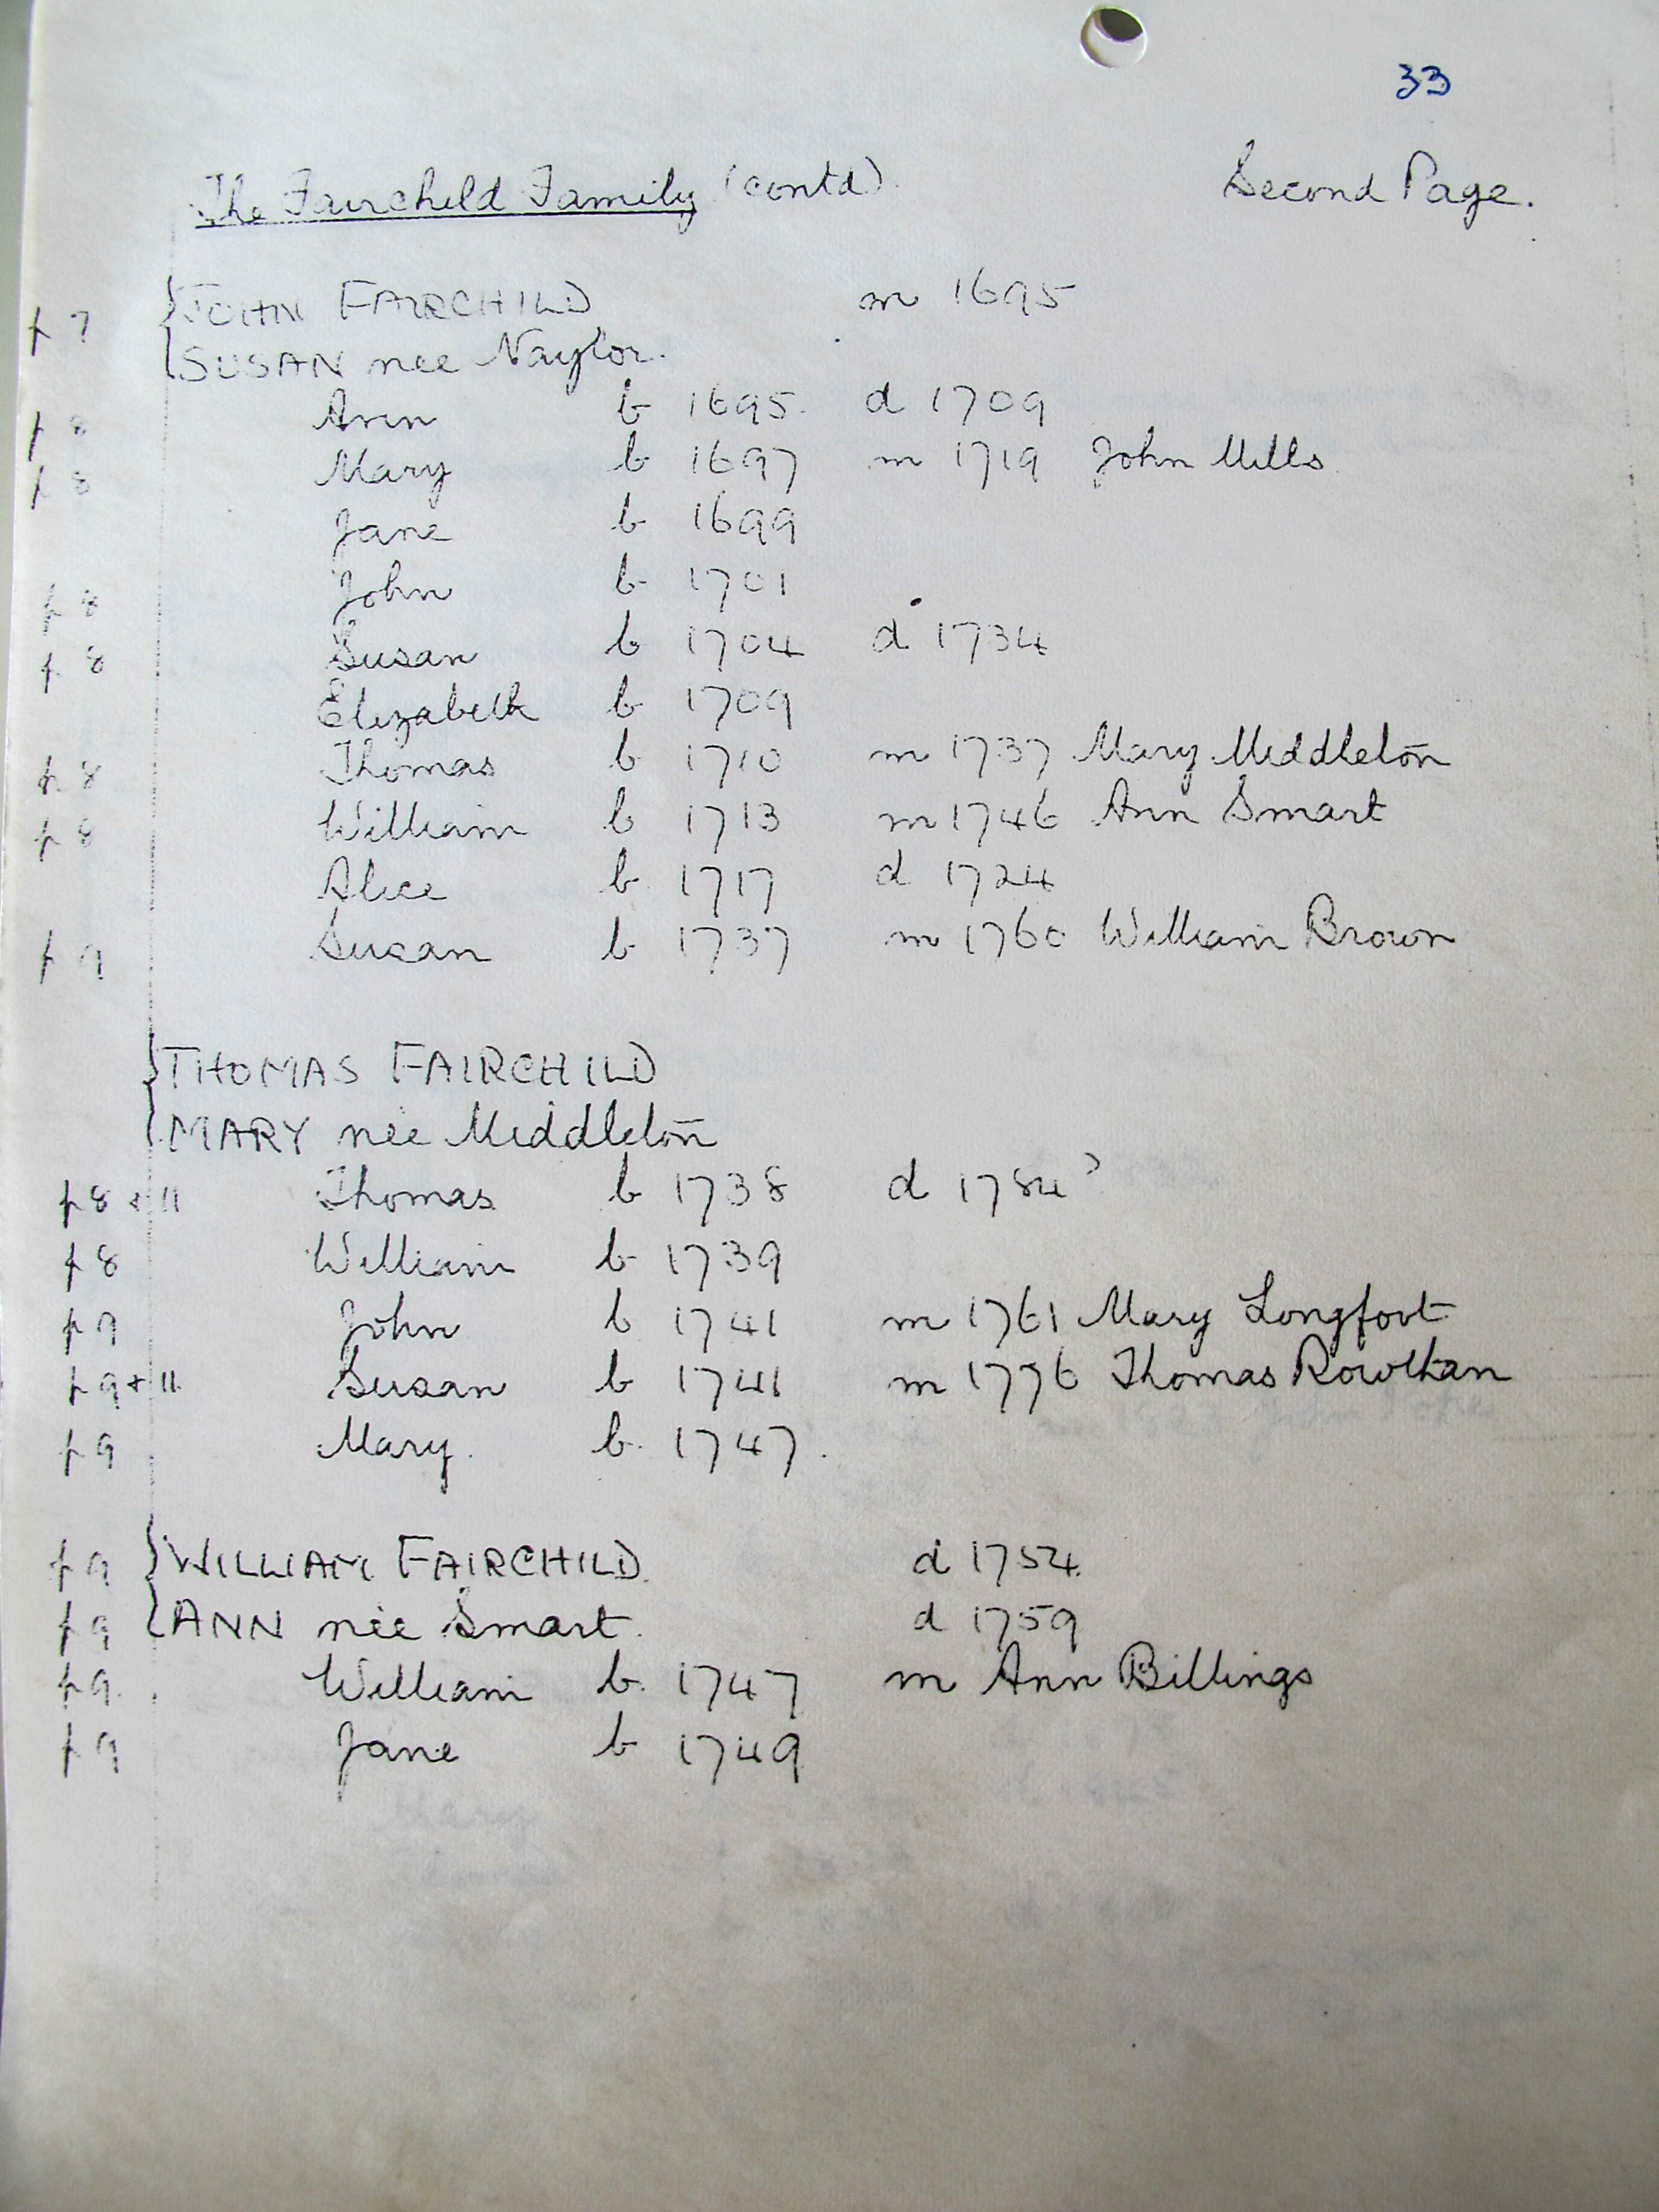 33
The Fairchild Family (contd). Second Page.
p 7 JOHN FAIRCHILD m 1695
SUSAN nee Naylor.
p 8 Ann b 1695. d 1709
p 8 Mary b 1697 m 1719 John Mills
Jane b 1699
p 8 John b 1701
p 8 Susan b 1704 d 1734
Elizabeth b 1709
p 8 Thomas b 1710 m 1737 Mary Middleton
p 8 William b 1713 m 1746 Ann Smart
Alice b 1717 d 1724
p 9 Susan b 1737 m 1760 William Brown
THOMAS FAIRCHILD
MARY née Middleton
p 8 + 11 Thomas b 1738 d 1784?
p 8 William b 1739
p 9 John b 1741 m 1761 Mary Longfoot
p 9 + 11 Susan b 1741 m 1776 Thomas Rowthan
p 9 Mary. b. 1747.
p 9 WILLIAM FAIRCHILD. d 1754.
p 9 ANN née Smart. d 1759
p 9. William b. 1747 m Ann Billings
p 9 Jane b 1749